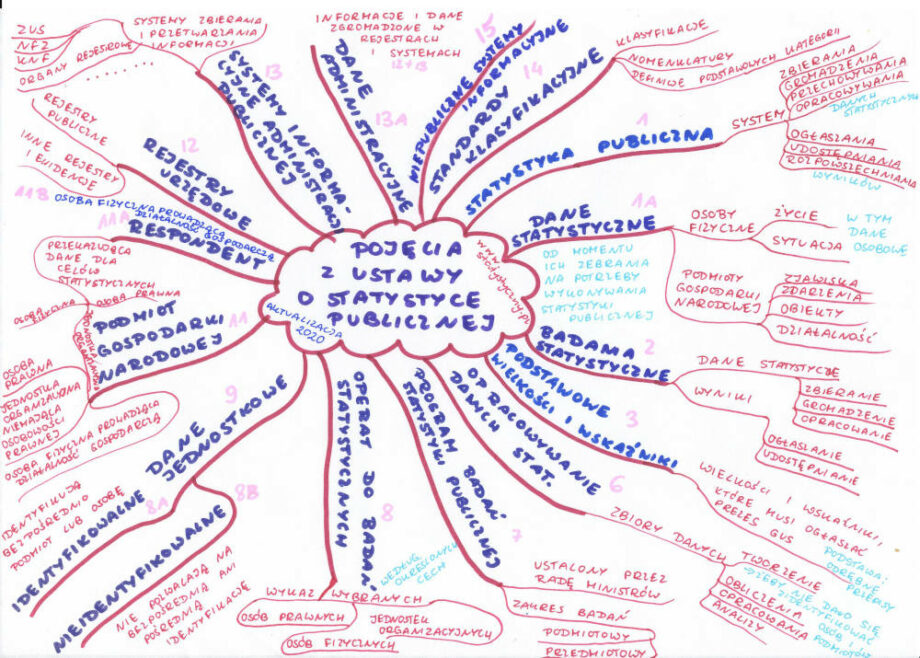 POJĘCIA
Z USTAWY
O STATYSTYCE
PUBLICZNEJ
AKTUALIZACJA
2020
1
STATYSTYKA PUBLICZNA
SYSTEM
ZBIERANIA
GROMADZENIA
PRZECHOWYWANIA
OPRACOWYWANIA
DANYCH
STATYSTYCZNYCH
OGŁASZANIA
UDOSTĘPNIANIA
ROZPOWSZECHNIANIA
WYNIKÓW
1A
DANE
STATYSTYCZNE
OD MOMENTU
ICH ZEBRANIA
NA POTRZEBY
WYKONYWANIA
STATYSTYKI
PUBLICZNEJ
OSOBY
FIZYCZNE
ŻYCIE
SYTUACJA
W TYM
DANE
OSOBOWE
PODMIOTY
GOSPODARKI
NARODOWEJ
ZJAWISKA
ZDARZENIA
OBIEKTY
DZIAŁALNOŚĆ
2
BADANIA
STATYSTYCZNE
DANE STATYSTYCZNE
ZBIERANIE
GROMADZENIE
OPRACOWANIE
WYNIKI
OGŁASLANIE
UDOSTĘPNIANIE
3
PODSTAWOWE
WIELKOŚCI I WSKAŹNIKI
WIELKOŚCI I
WSKAŹNIKI,
KTÓRE MUSI OGŁASZAĆ
PREZES GUS
PODSTAWA:
ODRĘBNE
PRZEPISY
6
OPRACOWYWANIE
DANYCH
STAT.
ZBIORY DANYCH
TWORZENIE
ŻEBY NIE DAŁO SIĘ
ZIDENTYFIKOWAĆ
OSÓB I
PODMIOTÓW
OBLICZENIA
OPRACOWANIA
ANALIZY
7
PROGRAM BADAŃ
STATYSTYKI PUBLICZNEJ
USTALONY PRZEZ
RADĘ MINISTRÓW
ZAKRES BADAŃ
PODMIOTOWY
PRZEDMIOTOWY
8
OPERAT DO BADAŃ
STATYSTYCZNYCH
WEDŁUG
OKREŚLONYCH
CECH
WYKAZ WYBRANYCH
OSÓB PRAWNYCH
JEDNOSTEK
ORGANIZACYJNYCH
OSÓB FIZYCZNYCH
9
DANE
JEDNOSTKOWE
8A
IDENTYFIKOWALNE
IDENTYFIKUJĄ
BEZPOŚREDNIO
PODMIOT LUB OSOBĘ
8B
NIEIDENTYFIKOWALNE
NIE POZWALAJĄ NA
BEZPOŚREDNIĄ ANI
POŚREDNIĄ
IDENTYFIKACJĘ
11
PODMIOT
GOSPODARKI
NARODOWEJ
OSOBA
PRAWNA
JEDNOSTKA
ORGANIZACYJNA
NIEMAJĄCA
OSOBOWOŚCI
PRAWNEJ
OSOBA FIZYCZNA PROWADZĄCA
DZIAŁALNOŚĆ GOSPODARCZĄ
11A
RESPONDENT
PRZEKAZUJĄCA
DANE DLA
CELÓW
STATYSTYCZNYCH
OSOBA FIZYCZNA
OSOBA PRAWNA
11B
OSOBA FIZYCZNA PROWADZĄCA
DZIAŁALNOŚĆ GOSPODARCZĄ
12
REJESTRY
URZĘDOWE
REJESTRY
PUBLICZNE
INNE REJESTRY
I EWIDENCJE
13
SYSTEMY INFORMA-
CYJNE ADMINISTRACJI
PUBLICZNEJ
SYSTEMY ZBIERANIA
I PRZETWARZANIA
INFORMACJI
ZUS
NFZ
KNF
ORGANY REJESTROWE
.......
13A
DANE
ADMINISTRACYJNE
INFORMACJE I DANE
ZGROMADZONE W
REJESTRACH
I SYSTEMACH
12+13
15
NIEPUBLICZNE SYSTEMY
INFORMACYJNE
14
STANDARDY
KLASYFIKACYJNE
KLASYFIKACJE
NOMENKLATURY
DEFINICJE PODSTAWOWYCH KATEGORII